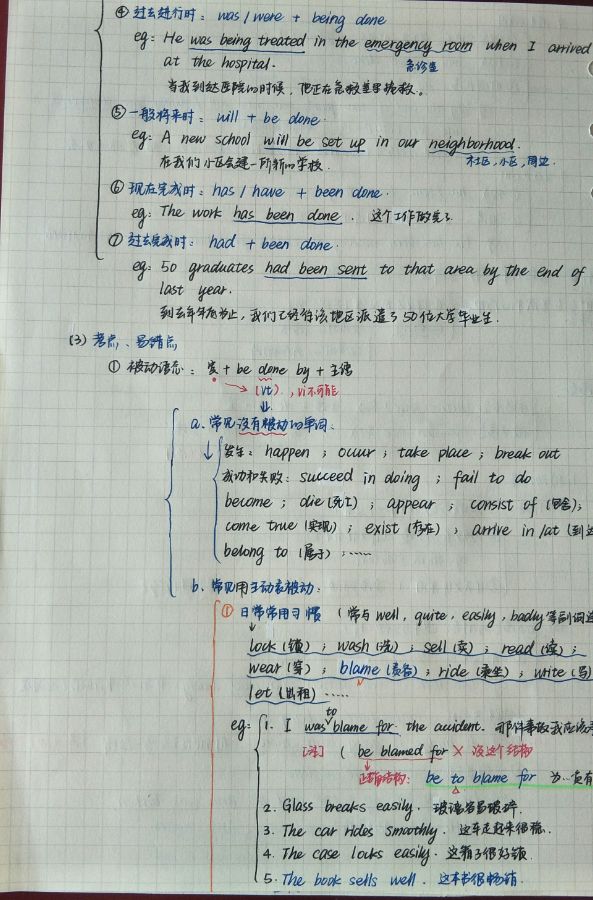 ④ 过去进行时: was / were + being done
eg: He was being treated in the emergency room when I arrived
at the hospital. 急诊室
当我到达医院的时候, 他正在急救室里抢救。
⑤ 一般将来时: will + be done.
eg: A new school will be set up in our neighborhood.
在我们小区会建一所新的学校. 社区, 小区, 周边
⑥ 现在完成时: has / have + been done.
eg: The work has been done. 这个工作做完了
⑦ 过去完成时: had + been done.
eg: 50 graduates had been sent to that area by the end of
last year.
到去年年底为止, 我们已经给该地区派遣了50位大学毕业生.
(3) 考点、易错点
① 被动语态: 宾 + be done by + 主语
(vt), vi不可能
a. 常见没有被动的单词:
发生: happen ; occur ; take place ; break out
成功和失败: succeed in doing ; fail to do
become ; die (死亡) ; appear ; consist of (包含);
come true (实现) ; exist (存在) ; arrive in /at (到达
belong to (属于) ; ······
b. 常见用主动表被动:
① 日常常用习惯 (常与 well, quite, easily, badly 等副词连
lock (锁) ; wash (洗) ; sell (卖) ; read (读) ;
wear (穿) ; blame (责备) ; ride (乘坐) ; write (写)
let (出租) ······
eg: 1. I was to blame for the accident. 那件事故我应该承
[注] ( be blamed for × 没这个结构
正确结构: be to blame for 为…负有
2. Glass breaks easily. 玻璃容易破碎.
3. The car rides smoothly. 这车走起来很稳.
4. The case locks easily. 这箱子很好锁.
5. The book sells well. 这本书很畅销.